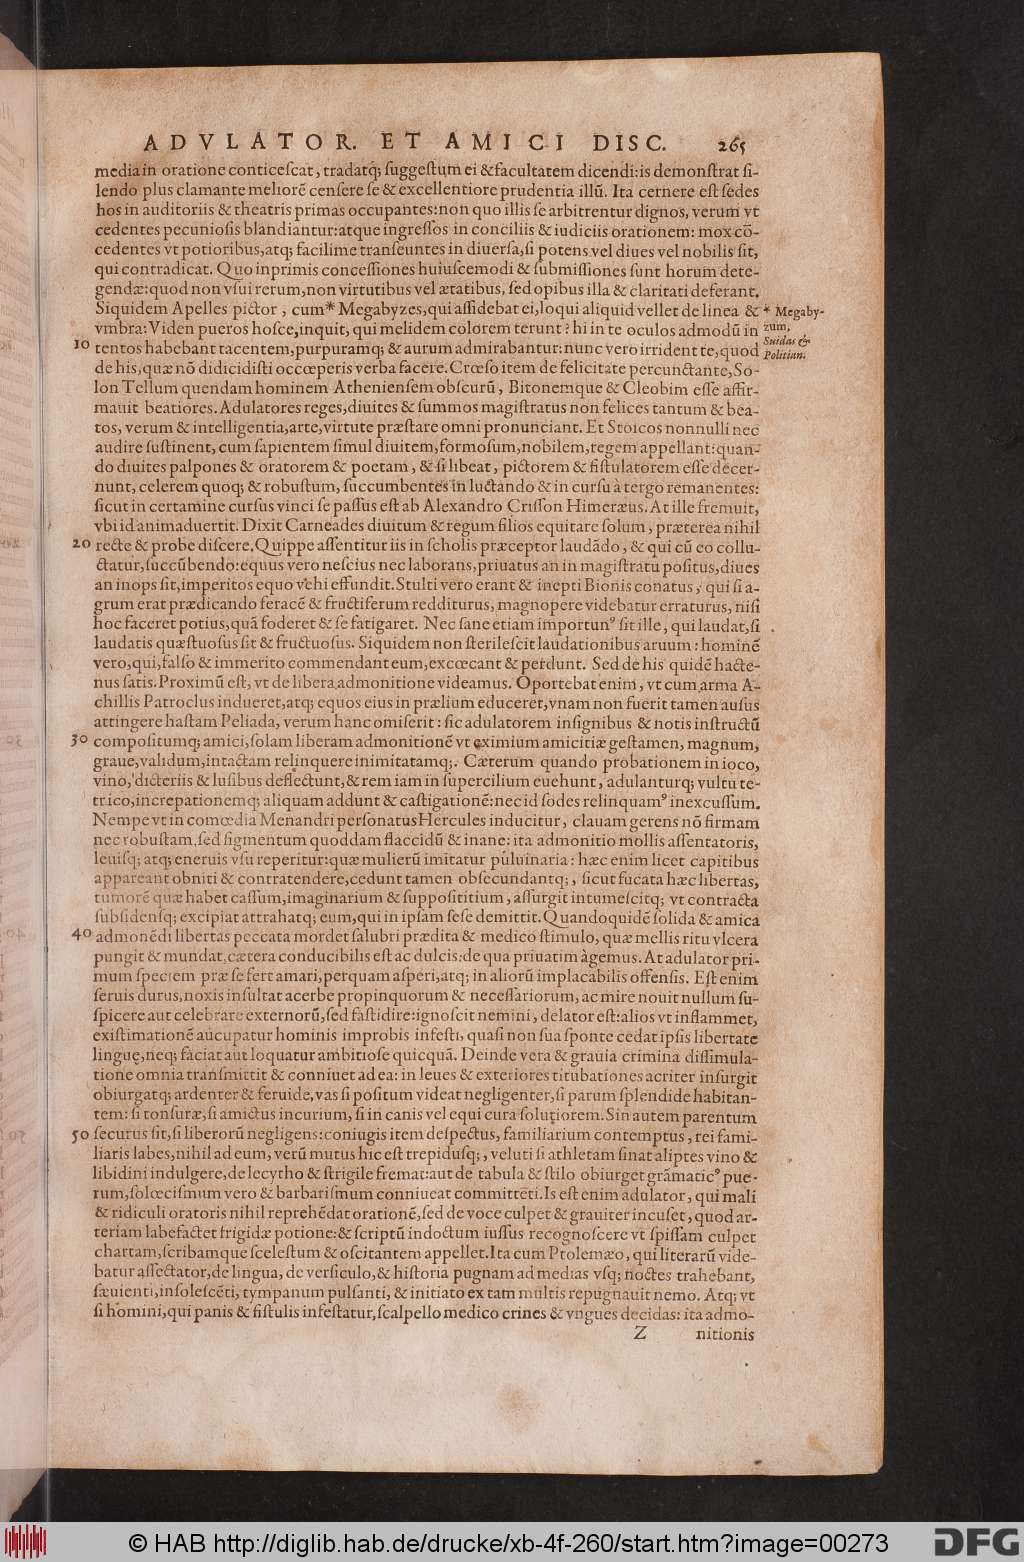 ADVLATOR. ET AMICI DISC. 265
media in oratione conticeſcat, tradatq; ſuggeſtum ei & facultatem dicendi: is demonſtrat ſi-
lendo plus clamante meliorē cenſere ſe & excellentiore prudentia illū. Ita cernere eſt ſedes
hos in auditoriis & theatris primas occupantes: non quo illis ſe arbitrentur dignos, verum vt
cedentes pecunioſis blandiantur: atque ingreſſos in conciliis & iudiciis orationem: mox cō-
cedentes vt potioribus, atq; facilime tranſeuntes in diuerſa, ſi potens vel diues vel nobilis ſit,
qui contradicat. Quo inprimis conceſſiones huiuſcemodi & ſubmiſſiones ſunt horum dete-
gendæ: quod non vſui rerum, non virtutibus vel ætatibus, ſed opibus illa & claritati deferant.
Siquidem Apelles pictor, cum* Megabyzes, qui aſſidebat ei, loqui aliquid vellet de linea & * Megaby-
vmbra: Viden pueros hoſce, inquit, qui melidem colorem terunt? hi in te oculos admodū in zum,
Suidas &
10 tentos habebant tacentem, purpuramq; & aurum admirabantur: nunc vero irrident te, quod Politian.
de his, quæ nō didicidiſti occœperis verba facere. Crœſo item de felicitate percunctante, So-
lon Tellum quendam hominem Athenienſem obſcurū, Bitonemque & Cleobim eſſe affir-
mauit beatiores. Adulatores reges, diuites & ſummos magiſtratus non felices tantum & bea-
tos, verum & intelligentia, arte, virtute præſtare omni pronunciant. Et Stoicos nonnulli nec
audire ſuſtinent, cum ſapientem ſimul diuitem, formoſum, nobilem, regem appellant: quan-
do diuites palpones & oratorem & poetam, & ſi libeat, pictorem & fiſtulatorem eſſe decer-
nunt, celerem quoq; & robuſtum, ſuccumbentes in luctando & in curſu à tergo remanentes:
ſicut in certamine curſus vinci ſe paſſus eſt ab Alexandro Criſſon Himeræus. At ille fremuit,
vbi id animaduertit. Dixit Carneades diuitum & regum filios equitare ſolum, præterea nihil
20 recte & probe diſcere. Quippe aſſentitur iis in ſcholis præceptor laudādo, & qui cū eo collu-
ctatur, ſuccūbendo: equus vero neſcius nec laborans, priuatus an in magiſtratu poſitus, diues
an inops ſit, imperitos equo vehi effundit. Stulti vero erant & inepti Bionis conatus, qui ſi a-
grum erat prædicando feracē & fructiferum redditurus, magnopere videbatur erraturus, niſi
hoc faceret potius, quā foderet & ſe fatigaret. Nec ſane etiam importunꝰ ſit ille, qui laudat, ſi
laudatis quæſtuoſus ſit & fructuoſus. Siquidem non ſterileſcit laudationibus aruum: hominē
vero, qui, falſo & immerito commendant eum, excœcant & perdunt. Sed de his quidē hacte-
nus ſatis. Proximū eſt, vt de libera admonitione videamus. Oportebat enim, vt cum arma A-
chillis Patroclus indueret, atq; equos eius in prælium educeret, vnam non fuerit tamen auſus
attingere haſtam Peliada, verum hanc omiſerit: ſic adulatorem inſignibus & notis inſtructū
30 compoſitumq; amici, ſolam liberam admonitionē vt eximium amicitiæ geſtamen, magnum,
graue, validum, intactam relinquere inimitatamq;. Cæterum quando probationem in ioco,
vino, dicteriis & luſibus deflectunt, & rem iam in ſupercilium euehunt, adulanturq; vultu te-
trico, increpationemq; aliquam addunt & caſtigationē: nec id ſodes relinquamꝰ inexcuſſum.
Nempe vt in comœdia Menandri perſonatus Hercules inducitur, clauam gerens nō firmam
nec robuſtam, ſed figmentum quoddam flaccidū & inane: ita admonitio mollis aſſentatoris,
leuiſq; atq; eneruis vſu reperitur: quæ mulierū imitatur puluinaria: hæc enim licet capitibus
appareant obniti & contratendere, cedunt tamen obſecundantq;, ſicut fucata hæc libertas,
tumorē quæ habet caſſum, imaginarium & ſuppoſititium, aſſurgit intumeſcitq; vt contracta
ſubſidenſq; excipiat attrahatq; eum, qui in ipſam ſeſe demittit. Quandoquidē ſolida & amica
40 admonēdi libertas peccata mordet ſalubri prædita & medico ſtimulo, quæ mellis ritu vlcera
pungit & mundat, cætera conducibilis eſt ac dulcis: de qua priuatim àgemus. At adulator pri-
mum ſpeciem præ ſe fert amari, perquam aſperi, atq; in aliorū implacabilis offenſis. Eſt enim
ſeruis durus, noxis inſultat acerbe propinquorum & neceſſariorum, ac mire nouit nullum ſu-
ſpicere aut celebrare externorū, ſed faſtidire: ignoſcit nemini, delator eſt: alios vt inflammet,
exiſtimationē aucupatur hominis improbis infeſti, quaſi non ſua ſponte cedat ipſis libertate
linguę, neq; faciat aut loquatur ambitioſe quicquā. Deinde vera & grauia crimina diſſimula-
tione omnia tranſmittit & conniuet ad ea: in leues & exteriores titubationes acriter inſurgit
obiurgatq; ardenter & feruide, vas ſi poſitum videat negligenter, ſi parum ſplendide habitan-
tem: ſi tonſuræ, ſi amictus incurium, ſi in canis vel equi cura ſolutiorem. Sin autem parentum
50 ſecurus ſit, ſi liberorū negligens: coniugis item deſpectus, familiarium contemptus, rei fami-
liaris labes, nihil ad eum, verū mutus hic eſt trepiduſq;, veluti ſi athletam ſinat aliptes vino &
libidini indulgere, de lecytho & ſtrigile fremat: aut de tabula & ſtilo obiurget grāmaticꝰ pue-
rum, ſolœciſmum vero & barbariſmum conniueat committēti. Is eſt enim adulator, qui mali
& ridiculi oratoris nihil reprehēdat orationē, ſed de voce culpet & grauiter incuſet, quod ar-
teriam labefactet frigidæ potione: & ſcriptū indoctum iuſſus recognoſcere vt ſpiſſam culpet
chartam, ſcribamque ſceleſtum & oſcitantem appellet. Ita cum Ptolemæo, qui literarū vide-
batur affectator, de lingua, de verſiculo, & hiſtoria pugnam ad medias vſq; noctes trahebant,
ſæuienti, inſoleſcēti, tympanum pulſanti, & initiato ex tam multis repugnauit nemo. Atq; vt
ſi homini, qui panis & fiſtulis infeſtatur, ſcalpello medico crines & vngues decidas: ita admo-
Z nitionis
© HAB http://diglib.hab.de/drucke/xb-4f-260/start.htm?image=00273 DFG